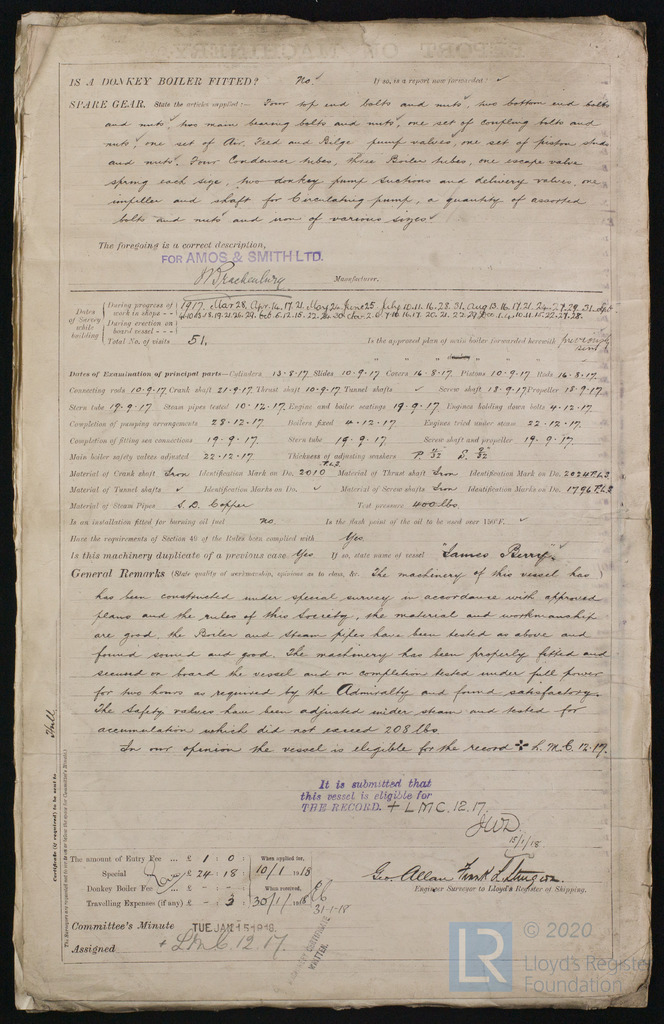 IS A DONKEY BOILER FITTED? No. If so, is a report now forwarded? ✓
SPARE GEAR. State the articles supplied:— Four top end bolts and nuts, two bottom end bolts
and nuts, two main bearing bolts and nuts, one set of coupling bolts and
nuts, one set of Air, Feed and Bilge pump valves, one set of piston studs
and nuts. Four Condenser tubes, three Boiler tubes, one escape valve
spring each size, two donkey pump suctions and delivery valves, one
impeller and shaft for Circulating pump, a quantity of assorted
bolts and nuts and iron of various sizes
The foregoing is a correct description,
FOR AMOS & SMITH LTD.
Manufacturer.
Dates of Survey while building
During progress of work in shops - - 1917. Mar 28, Apr. 14. 17. 21. May 24 June 25 July 10. 11. 16. 28. 31. Aug 13. 16. 17. 21.
During erection on board vessel - - -
Total No. of visits 51. Is the approved plan of main boiler forwarded herewith previously sent
" " " donkey " " "
Dates of Examination of principal parts—Cylinders 13.8.17 Slides 10.9.17. Covers 16.8.17 Pistons 10.9.17 Rods 16.8.17.
Connecting rods 10.9.17 Crank shaft 21.9.17 Thrust shaft 10.9.17 Tunnel shafts ✓ Screw shaft 18.9.17 Propeller 18.9.17.
Stern tube 19.9.17 Steam pipes tested 10.12.17. Engine and boiler seatings 19.9.17. Engines holding down bolts 4.12.17.
Completion of pumping arrangements 28.12.17 Boilers fixed 4.12.17. Engines tried under steam 22.12.17.
Completion of fitting sea connections 19.9.17. Stern tube 19.9.17 Screw shaft and propeller 19.9.17.
Main boiler safety valves adjusted 22.12.17. Thickness of adjusting washers
Material of Crank shaft Iron Identification Mark on Do. 2010 F.L.S. Material of Thrust shaft Iron Identification Mark on Do. 2024 F.L.S.
Material of Tunnel shafts ✓ Identification Marks on Do. ✓ Material of Screw shafts Iron Identification Marks on Do. 1796 F.L.S
Material of Steam Pipes S.D. Copper Test pressure 400 lbs.
Is an installation fitted for burning oil fuel no. Is the flash point of the oil to be used over 150°F. ✓
Have the requirements of Section 49 of the Rules been complied with Yes.
Is this machinery duplicate of a previous case Yes If so, state name of vessel "James Berry".
General Remarks (State quality of workmanship, opinions as to class, &c. The machinery of this vessel has
has been constructed under special survey in accordance with approved
plans and the rules of this Society, the material and workmanship
are good, the Boiler and Steam pipes have been tested as above and
found sound and good. The machinery has been properly fitted and
secured on board the vessel and on completion tested under full power
for two hours as required by the Admiralty and found satisfactory.
The Safety valves have been adjusted under steam and tested for
accumulation which did not exceed 208 lbs.
In our opinion the vessel is eligible for the record + L.M.C. 12.17.
It is submitted that
this vessel is eligible for
THE RECORD. + LMC. 12.17.
JWD
15/1/18
Hull
Certificate (if required) to be sent to
The amount of Entry Fee ... £ 1 : 0 : When applied for,
Special ... £ 24 : 18 : 10/1.1918
Donkey Boiler Fee ... £ - : - : When received,
Travelling Expenses (if any) £ - : 3 : 30/1/1918
31-1-18
Geo. Allan Frank L. Sturgeon
Engineer Surveyor to Lloyd's Register of Shipping.
Committee's Minute TUE. JAN. 15 1918.
Assigned + L.M.C. 12.17.
CERTIFICATE
WRITTEN
LR
© 2020
Lloyd's Register
Foundation